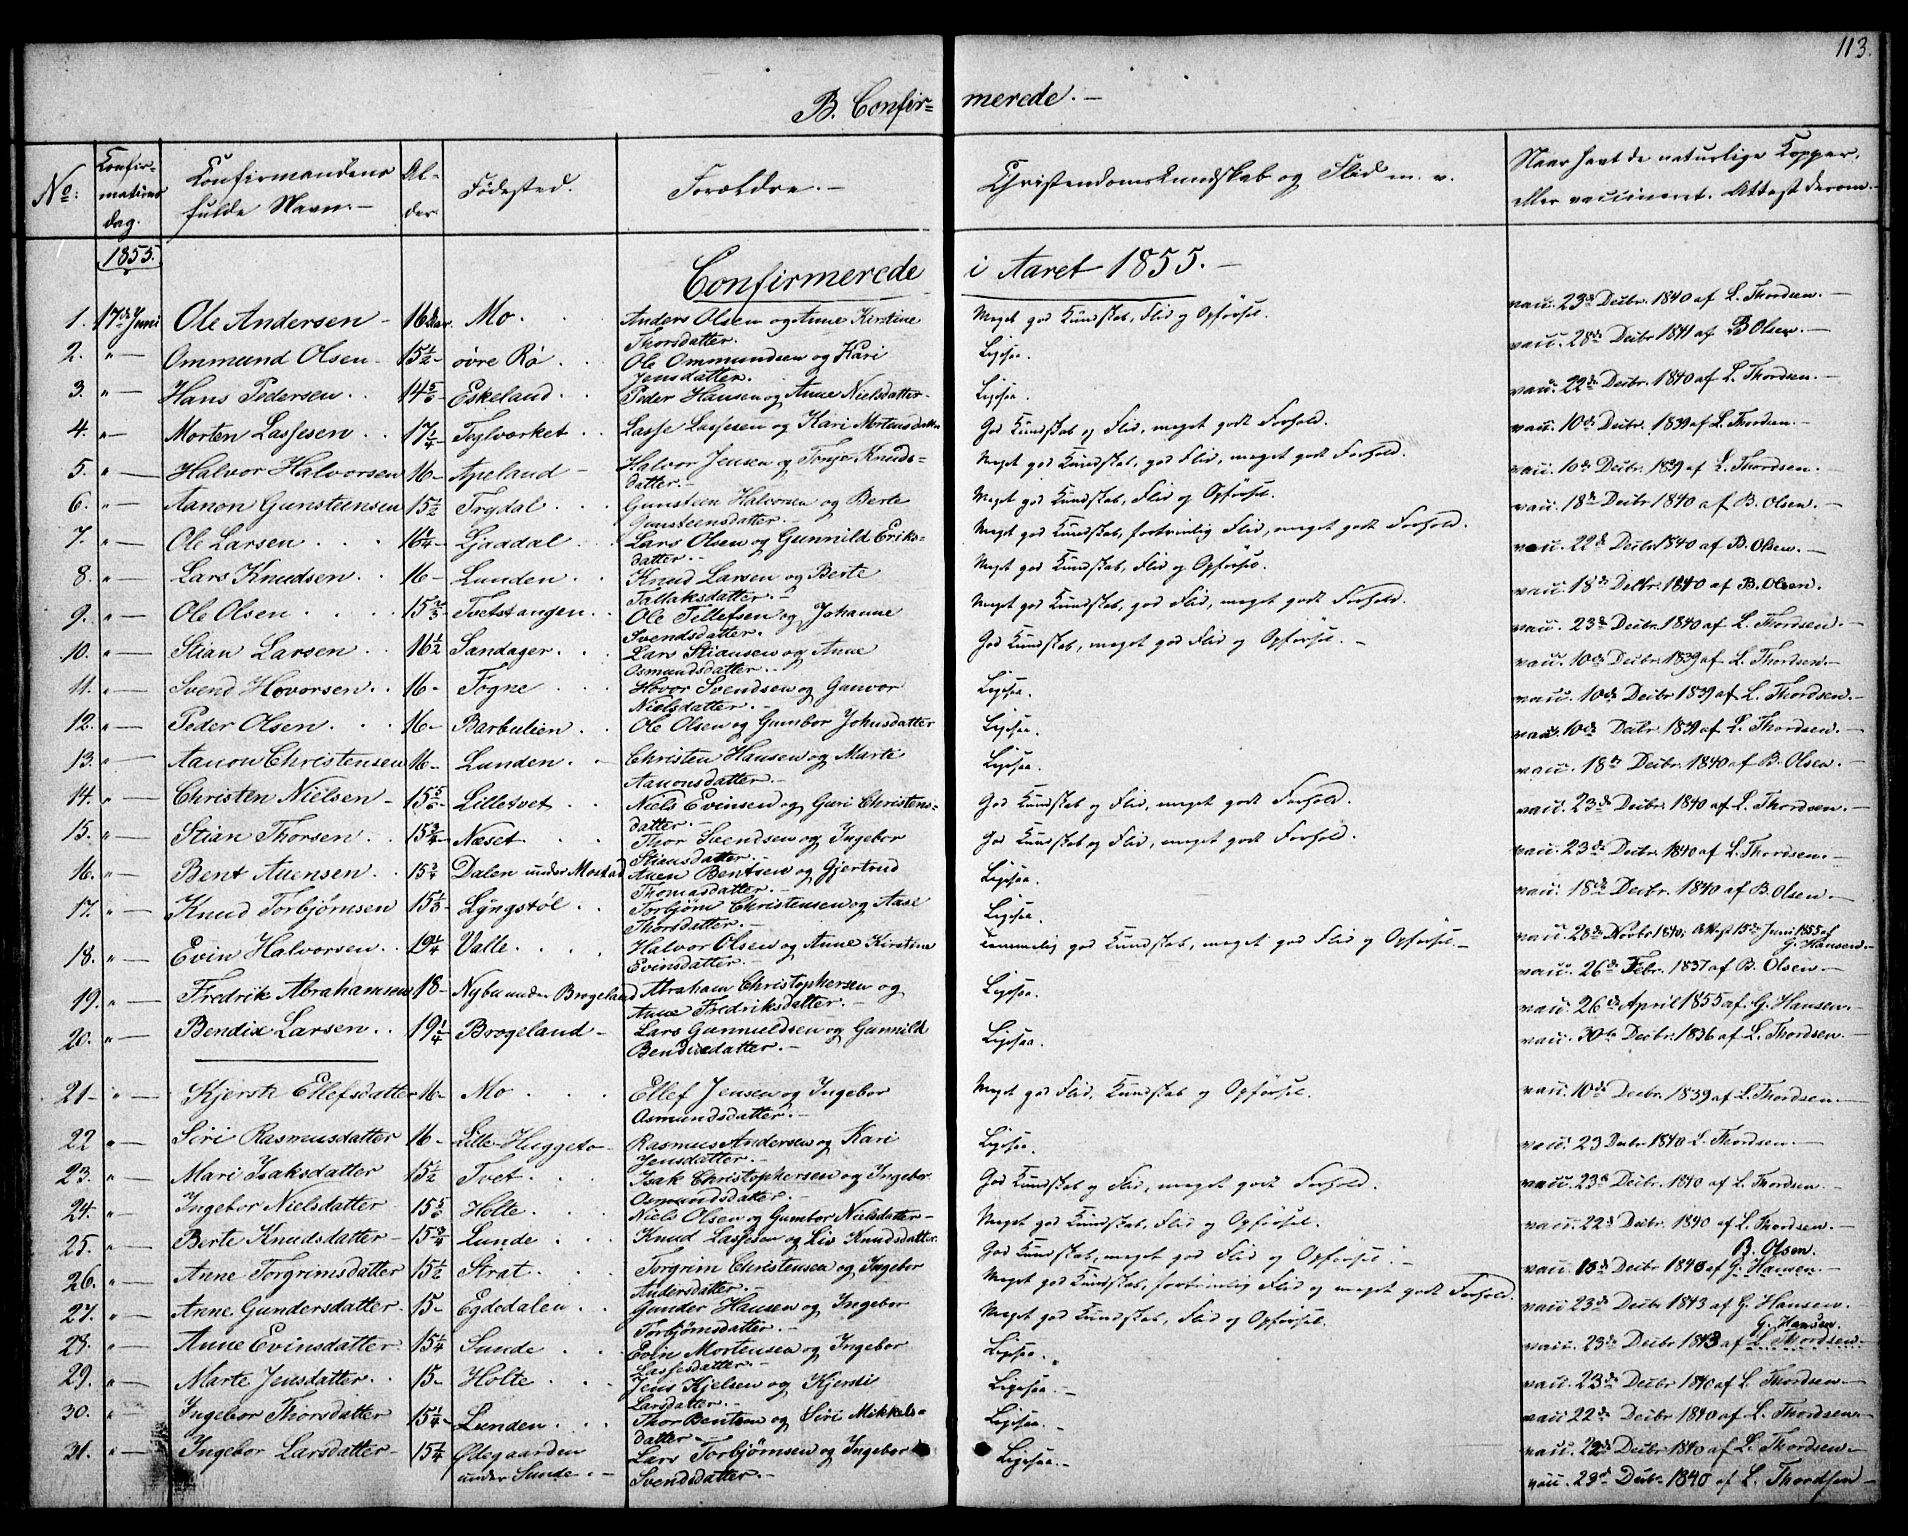 113.
B. Confirmerede.-
No: Confirmations dag. Confirmandens fulde Navn.- Alder. Fødested. Forældre.- Christendomskundskab og Flid m. v. Naar havt de naturlige Kopper, eller vaccineret. Attest derom.-
1855. Confirmerede i Aaret 1855.-
1. 17de Juni Ole Andersen- 16 Aar. Mo. Anders Olsen og Anne Kirstine Thorsdatter. Meget god Kundskab, Flid og Opførsel. vacc. 23de Decbr. 1840 af L. Thordsen.-
2. "- Ommund Olsen- 15 1/2- øvre Rø Ole Ommundsen og Kari Jensdatter. Ligesaa. vacc. 28de Decbr 1841 af B Olsen.-
3. "- Hans Pedersen. 14 5/6- Eskeland. Peder Hansen og Anne Nielsdatter- Ligesaa. vacc. 22de Decbr. 1840 af L. Thordsen.-
4. "- Morten Lassesen. 17 1/4- Teglværket Lasse Lassesen og Kari Mortensdatter God Kundskab og Flid, meget godt Forhold. vacc. 10de Decbr. 1839 af L. Thordsen.-
5. "- Halvor Halvorsen 16- Apeland- Halvor Jensen og Tonje Knudsdatter.- Meget god Kundskab, god Flid, meget godt Forhold. vacc. 10de Decbr. 1839 af L. Thordsen.-
6. "- Aanon Gunsteensen 15 1/2 Trydal. Gunsteen Halvorsen og Berte Gunsteensdatter.- Meget god Kundskab, Flid og Opførsel. vacc. 18de Decbr 1840 af B. Olsen.-
7. "- Ole Larsen 16 1/4- Ljaadal Lars Olsen og Gunnild Eriksdatter.- Meget god Kundskab, fortrinlig Flid, meget godt Forhold. vacc. 22de Decbr 1840 af B. Olsen.-
8. "- Lars Knudsen. 16- Lunden. Knud Larsen og Berte Tallaksdatter.- Meget god Kundskab, Flid og Opførsel. vacc. 18de Decbr. 1840 af B. Olsen.
9. "- Ole Olsen 15 2/3- Tvetstangen. Ole Tellefsen og Johanne Svendsdatter. Meget god Kundskab, god Flid, meget godt Forhold. vacc. 23de Decbr. 1840 af L. Thordsen.-
10. "- Stian Larsen 16 1/2 Sandager. Lars Stiansen og Anne Osmundsdatter.- God Kundskab, meget god Flid og Opførsel.- vacc. 10de Decbr. 1839 af L. Thordsen.-
11. "- Svend Hovorsen. 16- Fogne Hovor Svendsen og Gunvor Nielsdatter.- Ligesaa. vacc. 10de Decbr. 1839 af L. Thordsen.-
12. "- Peder Olsen. 16- Barbulien. Ole Olsen og Gumbor Johnsdatter Ligesaa. vacc. 10de Decbr. 1839 af L. Thordsen.-
13. "- Aanon Christensen 16- Lunden.- Christen Hansen og Marte Aanonsdatter.- Ligesaa. vacc. 18de Decbr. 1840 af B. Olsen.-
14. "- Christen Nielsen- 15 5/6- Lilletvet. Niels Evinsen og Guri Christensdatter.- God Kundskab og Flid, meget godt Forhold. vacc. 23de Decbr. 1840 af L. Thordsen.-
15. "- Stian Thorsen. 15 3/4- Næset. Thor Svendsen og Ingebor Stiansdatter.- God Kundskab og Flid, meget godt Forhold. vacc. 23de Decbr. 1840 af L. Thordsen.-
16. "- Bent Auensen. 15 3/4 Dalen under Mostad Auen Bentsen og Gjertrud Thomasdatter.- Ligesaa. vacc. 18de Decbr. 1840 af B. Olsen.-
17. "- Knud Torbjørnsen 15 1/3- Lyngstøl. Torbjørn Christensen og Aase Thorsdatter.- Ligesaa. vacc. 28de Novbr 1840, Attest 15de Juni 1855 af G. Hansen.-
18. "- Evin Halvorsen. 19 1/4 Valle. Halvor Olsen og Anne Kirstine Evinsdatter.- Temmelig god Kundskab, meget god Flid og Opførsel.- vacc. 26de Febr. 1837 af B. Olsen.-
19. "- Fredrik Abrahamsen 18- Nybu under Brøgeland Abraham Christophersen og Anne Fredriksdatter.- Ligesaa. vacc. 26de April 1855 af G. Hansen.
20. "- Bendix Larsen. 19 1/4- Brøgeland- Lars Gunnuldsen og Gunnild Bendixdatter.- Ligesaa. vacc. 30te Decbr. 1836 af L. Thordsen.-
21- "- Kjersti Ellefsdatter 16- Mo Ellef Jensen og Ingebor Osmundsdatter.- Meget god Flid, Kundskab og Opførsel. vacc. 10de Decbr. 1839 af L. Thordsen.-
22 "- Siri Rasmusdatter 16- Lille-Huggeto- Rasmus Andersen og Kari Jensdatter.- Ligesaa. vacc. 23 Decbr 1840 L. Thordsen.-
23. "- Mari Isaksdatter 15 1/2 Tvet. Isak Christophersen og Ingebor Osmundsdatter.- God Kundskab og Flid, meget godt Forhold. vacc. 23de Decbr. 1840 af L. Thordsen.-
24. "- Ingebor Nielsdatter 15 5/6 Holte. Niels Olsen og Gumbor Nielsdatter- Meget god Kundskab, Flid og Opførsel. vacc. 22de Decbr. 1840 af L. Thordsen.-
25. "- Berte Knudsdatter- 15 3/4 Lunde. Knud Lassesen og Liv Knudsdatter. God Kundskab, meget god Flid og Opførsel.- vacc. 18de Decbr 1840 af G. Hansen.- B. Olsen.
26. "- Anne Torgrimsdatter 15 1/2 Strat. Torgrim Christensen og Ingebor Andersdatter.- Meget god Kundskab, fortrinlig Flid og meget godt Forhold. vacc. 23de Decbr 1843 af G. Hansen.
27. "- Anne Gundersdatter. 15- Egdedalen. Gunder Hansen og Ingebor Torbjørnsdatter.- Meget god Kundskab, Flid og Opførsel. vacc. 23de Decbr 1843 af L. Thordsen. G. Hansen.
28. "- Anne Evinsdatter 15 1/4 Sunde Evin Mortensen og Ingebor Lassesdatter.- Ligesaa. vacc. 23de Decbr 1840 af L. Thordsen-
29. "- Marte Jensdatter. 15- Holte. Jens Kjelsen og Kjersti Larsdatter.- Ligesaa.- vacc. 22de Decbr 1840 af L. Thordsen-
30. "- Ingebor Thorsdatter 15 1/4- Lunden. Thor Bentsen og Siri Mikkelsdatter.- Ligesaa.- vacc. 22de Decbr 1840 af L. Thordsen-
31. "- Ingebor Larsdatter- 15 1/4 Ødegaarden under Sunde.- Lars Torbjørnsen og Ingebor Svendsdatter.- Ligesaa.- vacc. 23de Decbr. 1840 af L. Thordsen-